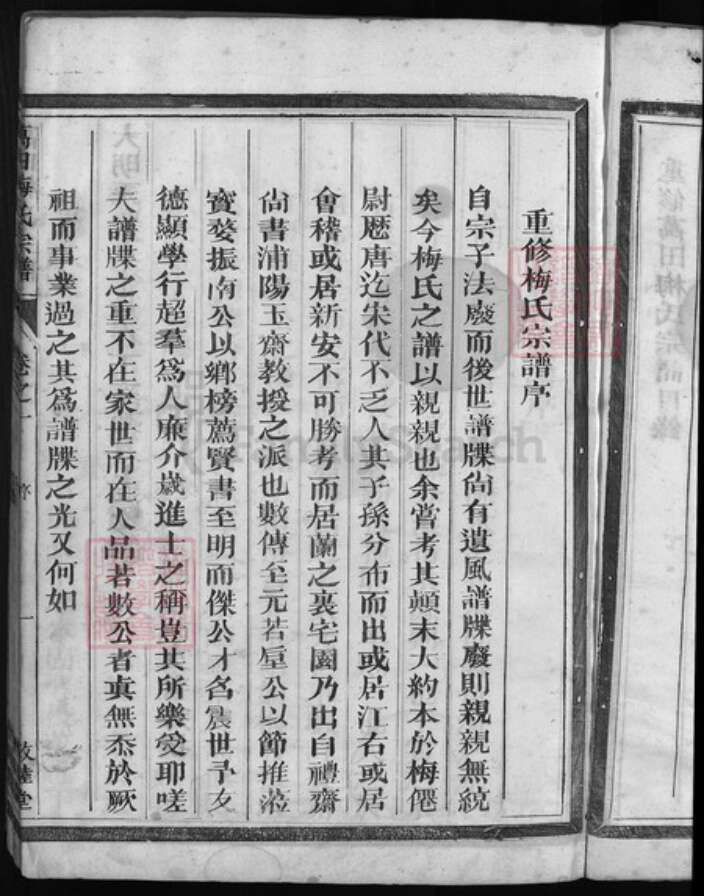 重修梅氏宗譜序
自宗子法廢而後世譜牒尚有遺風譜牒廢則親親無統
矣今梅氏之譜以親親也余嘗考其顛末大約本於梅僊
尉歷唐迄宋代不乏人其子孫分布而出或居江右或居
會稽或居新安不可勝考而居蘭之裏宅園乃出自禮齋
尚書浦陽玉齋教授之派也數傳至元若垕公以節推蒞
寳婺振南公以鄉榜薦賢書至明而傑公才名震世予友
德顯學行超羣為人廉介歲進士之稱豈其所樂受耶嗟
夫譜牒之重不在家世而在人品若數公者真無忝於厥
祖而事業過之其為譜牒之光又何如
萬田梅氏宗譜
卷之一
序
一
敦睦堂
重修萬田梅氏宗譜目錄
大明
FamilySearch